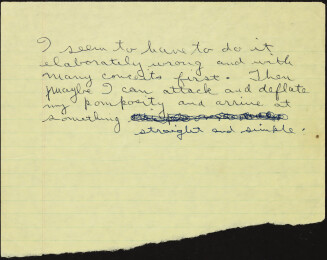 I seem to have to do it
elaborately wrong and with
many conceits first. Then
maybe I can attack and deflate
my pomposity and arrive at
something
straight and simple.